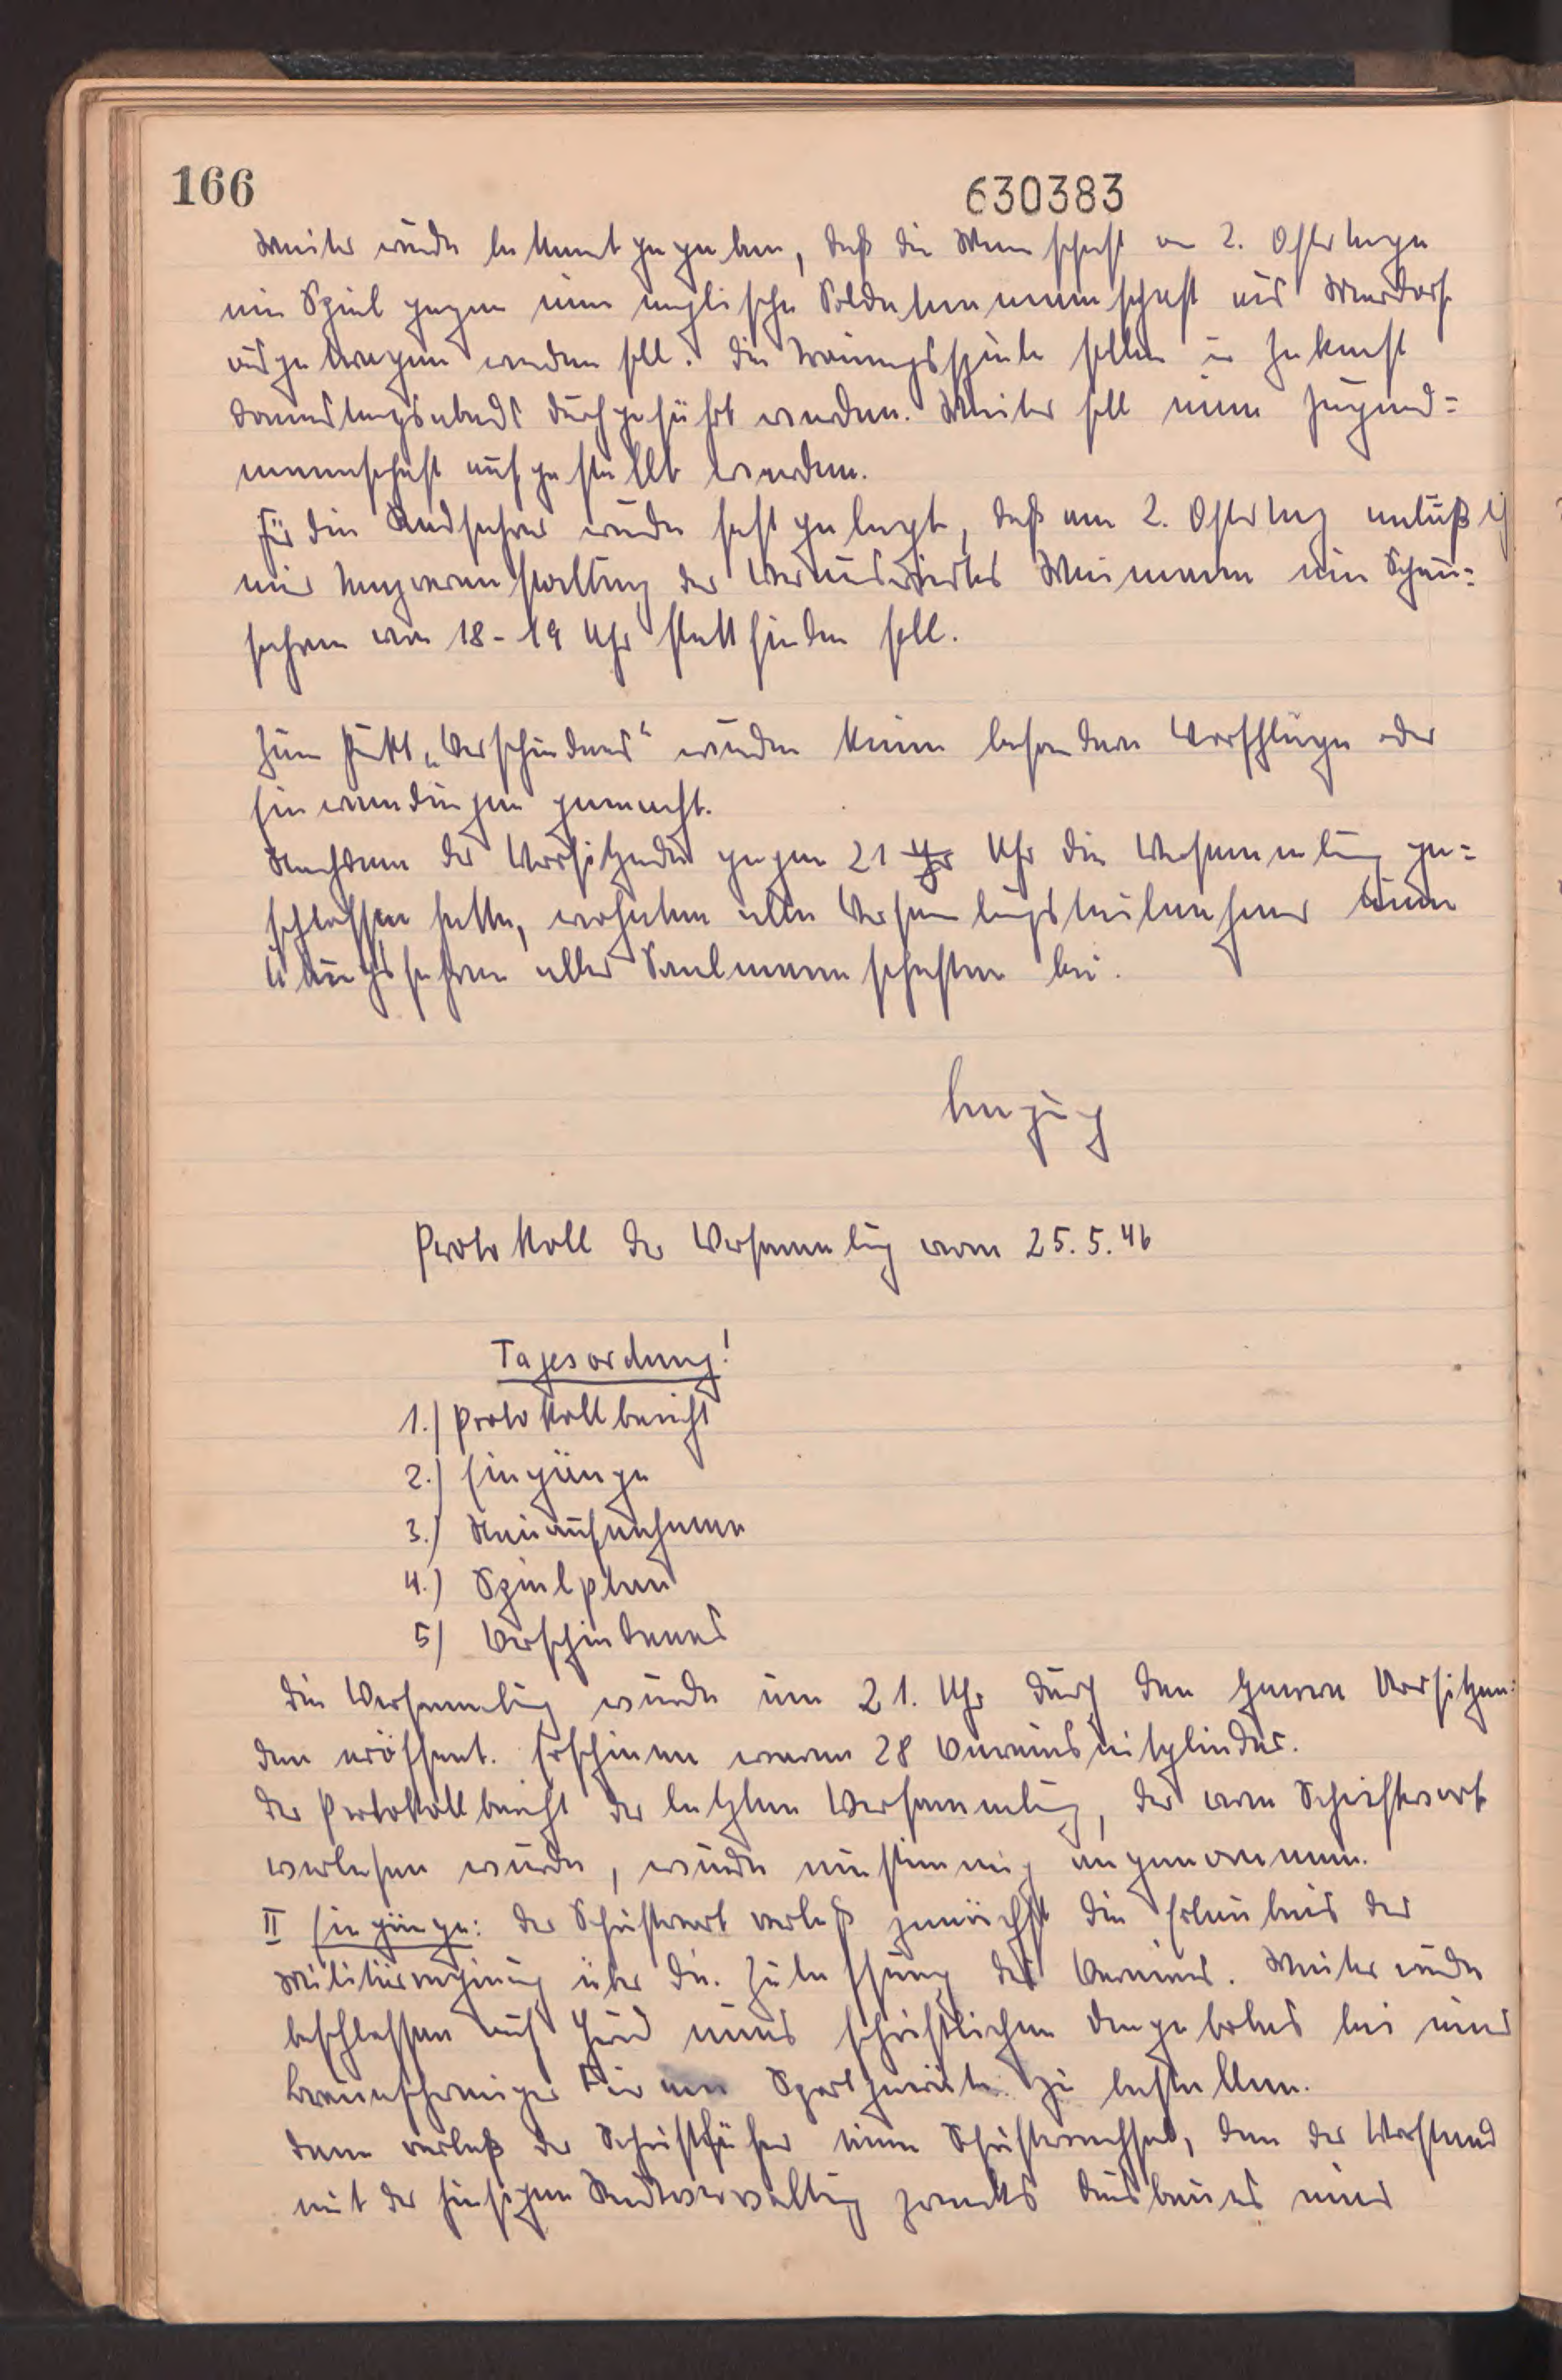 166
630383
Weiter wurde bekannt gegeben, daß die Mannschaft am 2. Ostertage
ein Spiel gegen eine englische Soldatenmannschaft aus
ausgetragen werden soll. Die Trainingsspiele sollen in Zukunft
Donnerstagsabends durchgeführt werden. Weiter soll eine Jugend=
mannschaft aufgestellt werden.
Für die Radfahrer wurde festgelegt, daß am 2. Ostertag anläßlich
einer Tanzveranstaltung des Vereinswirtes Weimann ein Schau=
fahren von 18-19 Uhr stattfinden soll.
Zum Punkt „Verschiedenes“ wurden keine besonderen Vorschläge oder
Einwendungen gemacht.
Nachdem der Vorsitzende gegen 21 Uhr die Versammlung ge=
schlossen hatte, wohnten alle Versammlungsteilnehmer einem
Übungsfahren aller Saalmannschaften bei.
Protokoll der Versammlung vom 25.5.46
Tagesordnung!
1.) Protokollbericht
2.) Eingänge
3.) Neuaufnahmen
4.) Spielplan
5) Verschiedenes
Die Versammlung wurde um 21. Uhr durch den Vorsitzen=
den eröffnet. Erschienen waren 28 Vereinsmitglieder.
Der Protokollbericht der letzten Versammlung, der vom Schriftwart
verlesen wurde, wurde einstimmig angenommen.
II Eingänge: Der Schriftwart verlaß zunächst die Erlaubnis der
Militärregierung über die Zulassung des Vereins. Weiter wurde
beschlossen auf Grund eines schriftlichen Angebotes bei einer
Braunschweiger Firma Sportgeräte zu bestellen.
Dann verlaß der Schriftführer einen Schriftwechsel, den der Vorstand
mit der hiesigen Stadtverwaltung zwecks Ausbaues eines